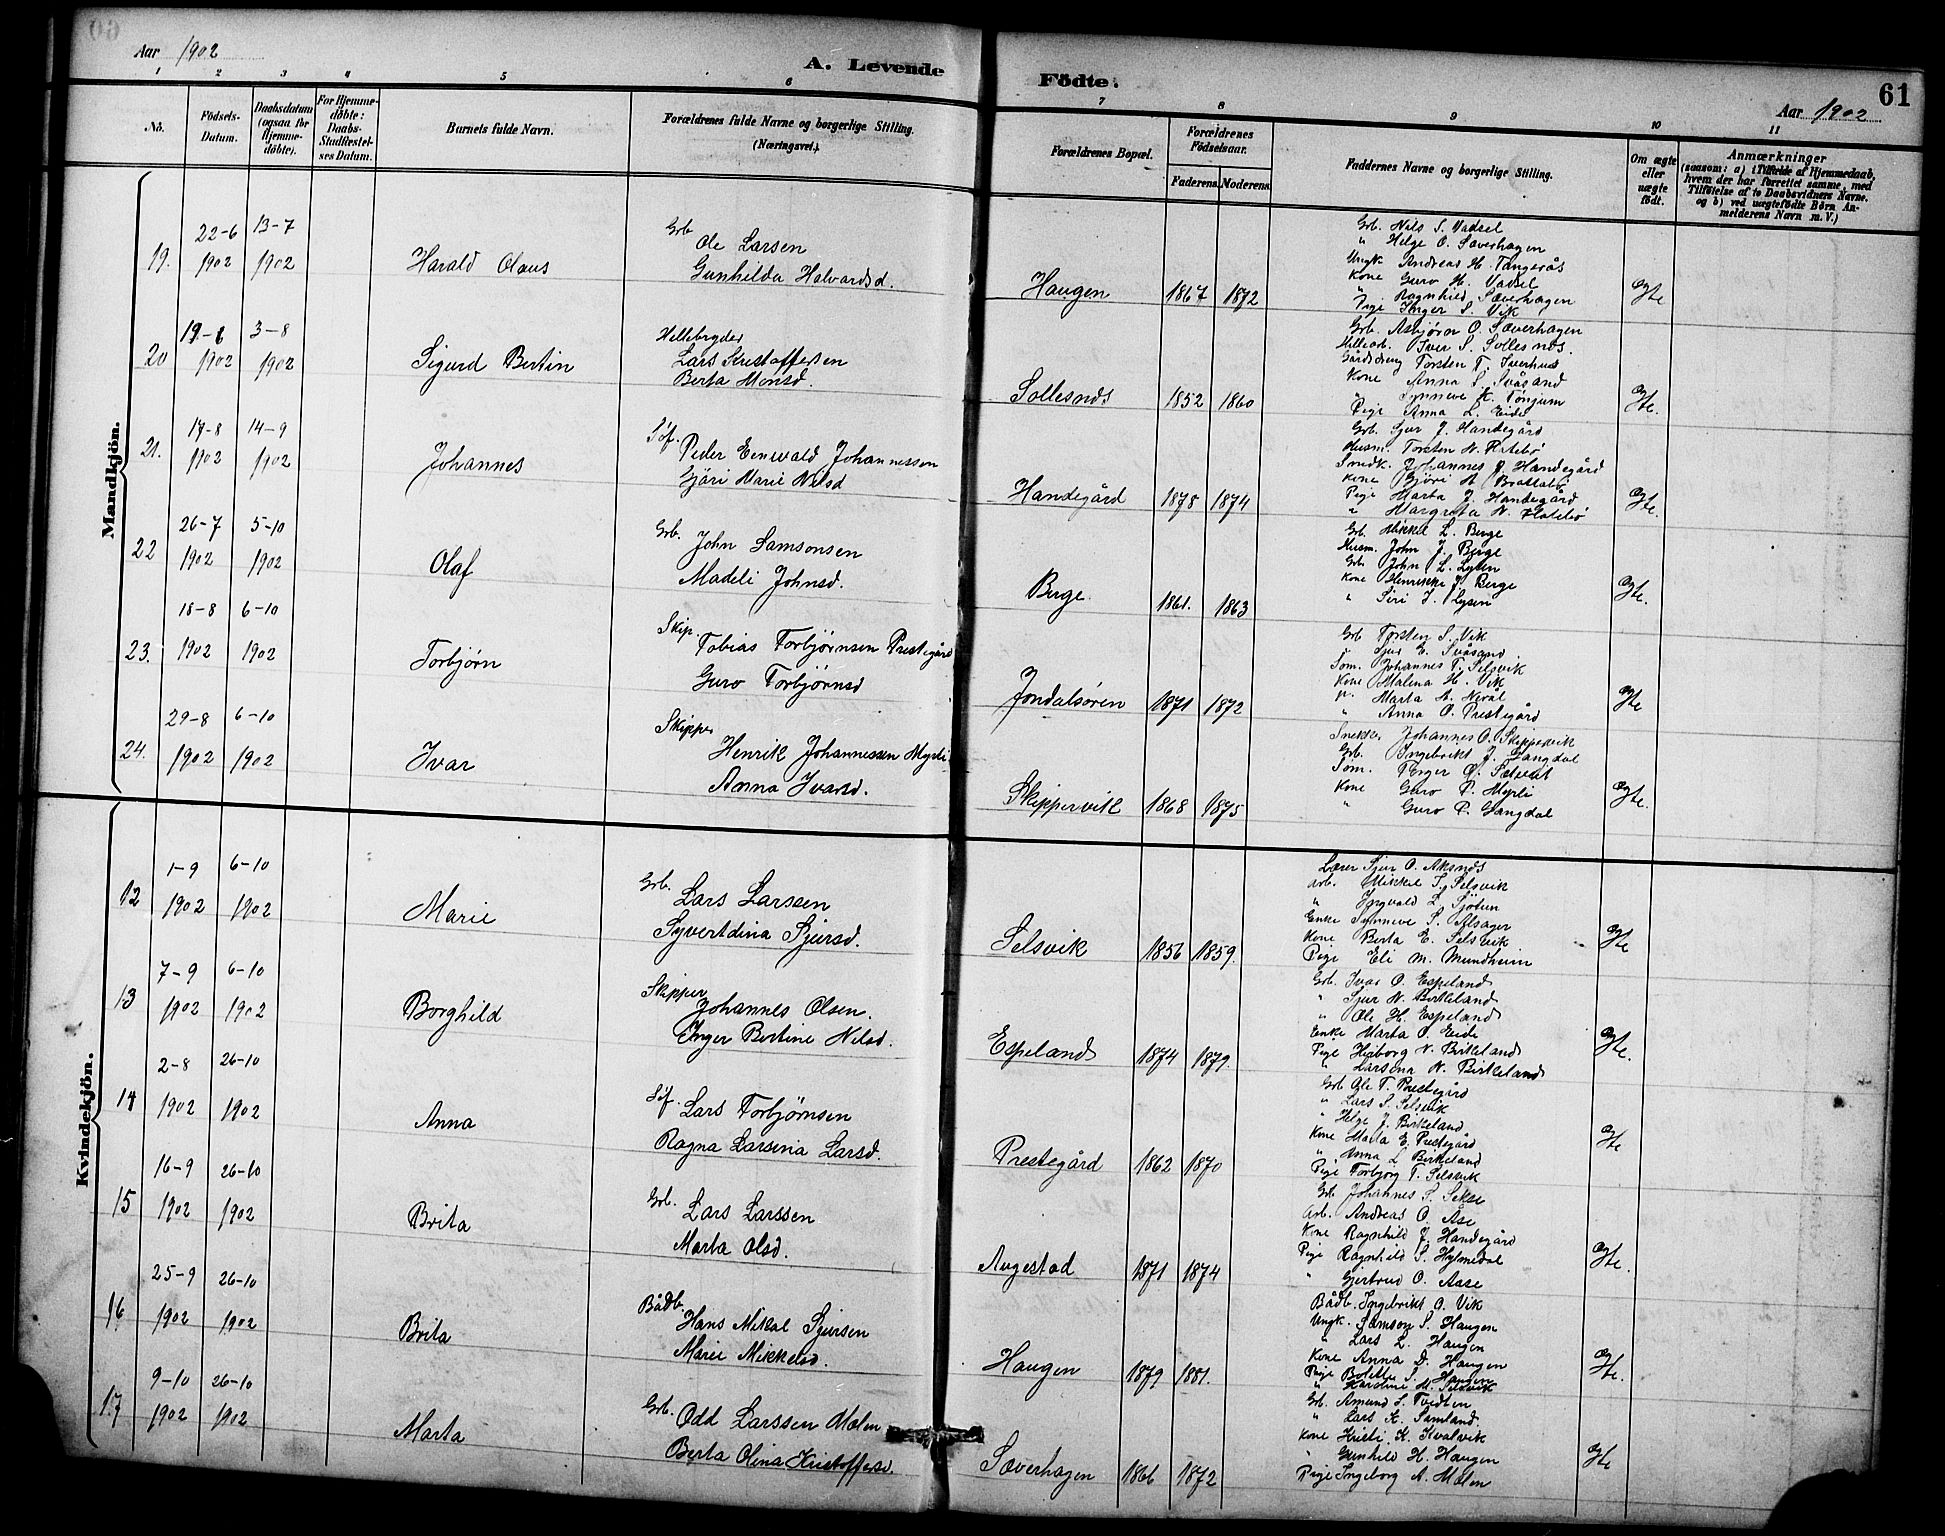 Aar 1902
A. Levende
Födte.
Aar 1902
61
1 2 3 4 5 6 7 8 9 10 11
No.
Födsels-Datum.
Daabsdatum (ogsaa for Hjemme-döbte).
For Hjemme-döbte: Daabs-Stadfæstel-ses Datum.
Barnets fulde Navn.
Forældrenes fulde Navne og borgerlige Stilling. (Næringsvei.)
Forældrenes Bopæl.
Forældrenes Födselsaar.
Faderens. Moderens.
Faddernes Navne og borgerlige Stilling.
Om ægte eller uægte födt.
Anmærkninger
(saasom: a) i Tilfælde af Hjemmedaab, hvem der har forrettet samme, med Tilföielse af to Daabsvidners Navne, og b) ved uægtefödte Börn An-melderens Navn m. V.)
Mandkjön.
19. 22-6 1902 13-7 1902 Harald Olaus
Grb Ole Larsen
Gunhilda Halvardsd.
Haugen 1867 1872
Grb. Nils S. Vadsel
" Helge O. Sæverhagen
Ungk. Andreas H. Tangerås
Kone Guro H. Vadsel
" Ragnhild Sæverhagen
Pige Inger S. Vik
Ægte
20 19-6 1902 3-8 1902 Sigurd Bertin
Hellebryder
Lars Kristoffersen
Berta Monsd.
Sollesnæs 1852 1860
Grb. Asbjørn O. Sæverhagen
Hellearb. Iver S. Sollesnæs.
Gårddreng Torsten T. Iverhus
Kone Anna S. Svåsand
" Synneve K. Tonjum
Pige Anna L. Eide
Ægte.
21. 17-8 1902 14-9 1902 Johannes
Søf. Peder Enevald Johannessen
Gjøri Marie Nilsd
Handegård 1878 1874
Grb. Sjur J. Handegård
Husm. Torsten N. Hatebø
Smedk. Johannes J. Handegård
Kone Gjøri A. Brattabø
Pige Marta J. Handegård
" Margreta N. Hatebø
Ægte.
22 26-7 1902 5-10 1902 Olaf
Grb. John Samsonsen
Madeli Johnsd.
Berge. 1861. 1863
Grb. Mikkel L. Berge
Husm. John J. Berge
Grb. John L. Lysen
Kone Henrikke J. Berge
" Siri J. Lysen
Ægte.
23. 18-8 1902 6-10 1902 Torbjørn
Skip. Tobias Torbjørnsen Prestegård
Guro Torbjørnsd
Jondalsøren 1871 1872
Grb Torsten S. Vik
" Sjur E. Svåsand
Tøm. Johannes T. Selsvik
Kone Malena H. Vik
" Marta A. Nerål
" Anna O. Prestegård
Ægte
24. 29-8 1902 6-10 1902 Ivar
Skipper
Henrik Johannessen Myrli
Anna Ivarsd.
Skippervik 1868 1875
Snekker Johannes O. Skippervik
Grb. Ingebrikt J. Gangdal
Tøm.
Kone Guro P. Myrli
" Guro P. Gangdal
Ægte.
Kvindekjön.
12 1-9 1902 6-10 1902 Marie
Grb. Lars Larssen
Syvertdina Sjursd.
Selsvik 1856 1859.
Lærer Sjur O. Aksnæs
Arb. Mikkel T. Selsvik
" Ingvald L. Sjøtun
Enke Synneve S. Alsager
Kone Berta E. Selsvik
Pige Eli M. Mundheim
Ægte
13 7-9 1902 6-10 1902 Borghild
Skipper
Johannes Olsen.
Inger Bertine Nilsd.
Espeland 1874 1879.
Grb. Ivar O. Espeland
" Sjur N. Birkeland
" Ole H. Espeland
Enke Marta O. Eide
Pige Heiborg N. Birkeland
" Larsena N. Birkeland
Ægte.
14 2-8 1902 26-10 1902 Anna
Søf. Lars Torbjørnsen
Ragna Larsina Larsd.
Prestegård 1862 1870
Grb Ole T. Prestegård
" Lars S. Selsvik
" Helge J. Birkeland
Kone Marta E. Prestegård
" Anna L. Birkeland
Pige Torbjørg T. Selsvik
Ægte
15 16-9 1902 26-10 1902 Brita
Grb. Lars Larssen
Marta Olsd.
Augestad 1871 1874
Grb Johannes S. Sekse
Arb. Andreas O. Åse
Kone Ragnhild J. Handegård
Pige Ragnhild S. Hylmedal
" Gjertrud O. Aase
Ægte.
16 25-9 1902 26-10 1902 Brita
Bådb. Hans Mikal Sjursen
Marie Mikkelsd.
Haugen 1879 1881.
Bådb. Ingebrikt O. Vik
Ungk. Samson S. Haugen
" Lars L. Haugen
Kone Anna D. Haugen
Pige Bolette S. Haugen
" Karoline M. Selsvik
Ægte.
17 9-10 1902 26-10 1902 Marta
Grb. Odd Larssen Mælen
Berta Olina Kristoffersd.
Sæverhagen 1866 1872
Grb. Amund S. Tvedten
" Lars K. Samland.
Kone Kristi K. Kvalvik
" Gunhild H. Haugen
Pige Ingeborg A. Mælen
Ægte